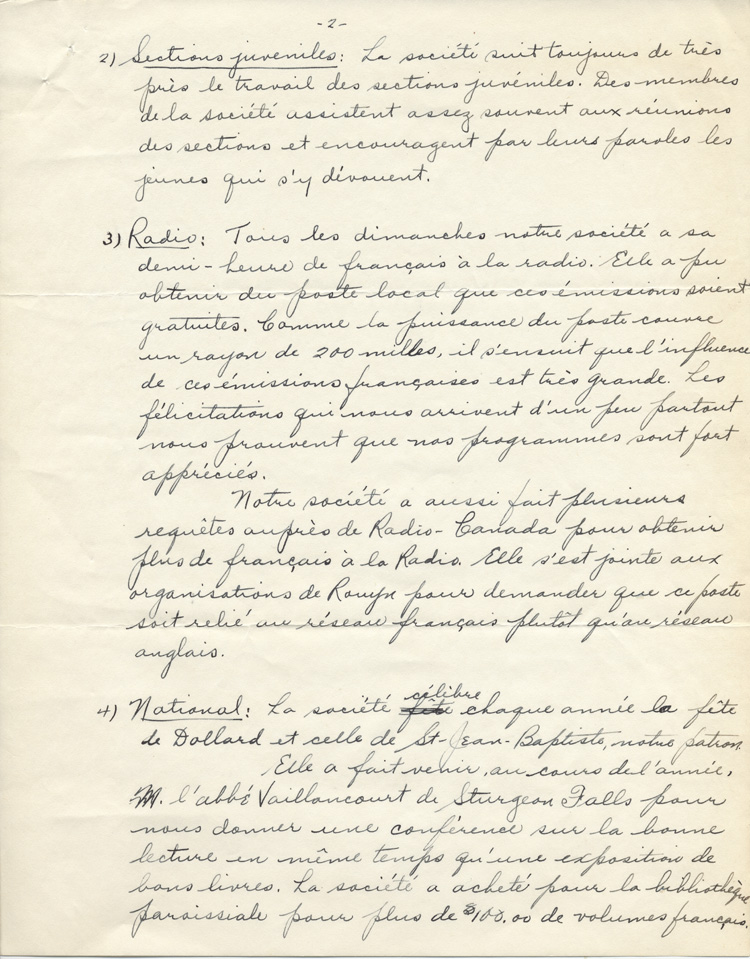 -2-
2) Sections juveniles: La société suit toujours de très
près le travail des sections juvéniles. Des membres
de la société assistent assez souvent aux réunions
des sections et encouragent par leurs paroles les
jeunes qui s'y dévouent.
3) Radio: Tous les dimanches notre société a sa
demi-heure de français à la radio. Elle a pu
obtenir du poste local que ces émissions soient
gratuites. Comme la puissance du poste couvre
un rayon de 200 milles, il s'ensuit que l'influence
de ces émissions françaises est très grande. Les
félicitations qui nous arrivent d'un peu partout
nous prouvent que nos programmes sont fort
appréciés.
Notre société a aussi fait plusieurs
requêtes auprès de Radio-Canada pour obtenir
plus de français à la Radio. Elle s'est jointe aux
organisations de Rouyn pour demander que ce poste
soit relié au réseau français plutôt qu'au réseau
anglais.
célèbre
4) National: La société fête chaque année la fête
de Dollard et celle de St-Jean-Baptiste, notre patron.
Elle a fait venir, au cours de l'année,
M. l'abbé Vaillancourt de Sturgeon Falls pour
nous donner une conférence sur la bonne
lecture en même temps qu'une exposition de
bons livres. La société a acheté pour la bibliothèque
paroissiale pour plus de $100.00 de volumes français.